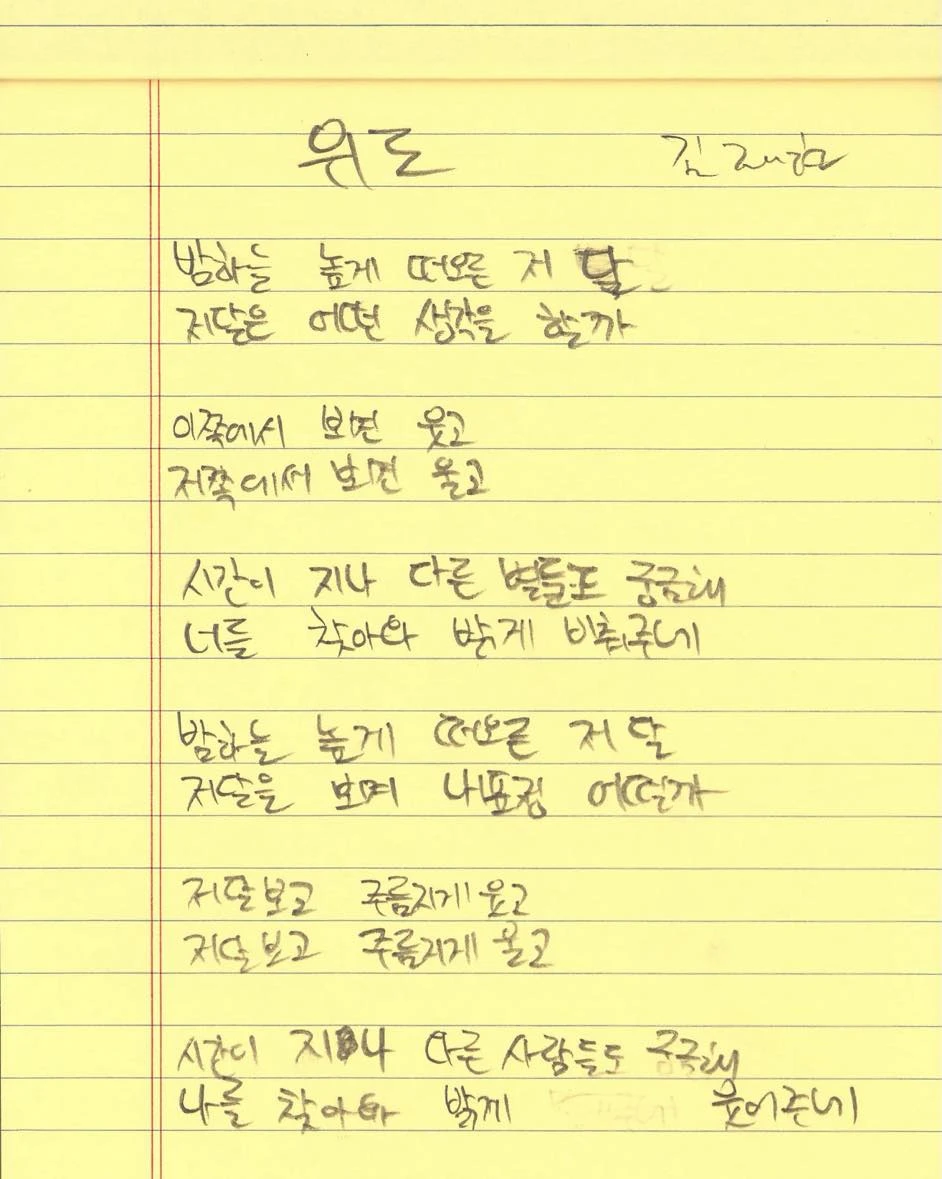 위로 김
밤하늘 높게 떠오른 저 달
저달은 어떤 생각을 할까
이쪽에서 보면 웃고
저쪽에서 보면 울고
시간이 지나 다른 별들도 궁금해
너를 찾아와 밝게 비춰주네
밤하늘 높게 떠오른 저 달
저달을 보며 내표정 어떨까
저달보고 주름지게 웃고
저달보고 주름지게 울고
시간이 지나 다른 사람들도 궁금해
나를 찾아와 밝게 웃어주네